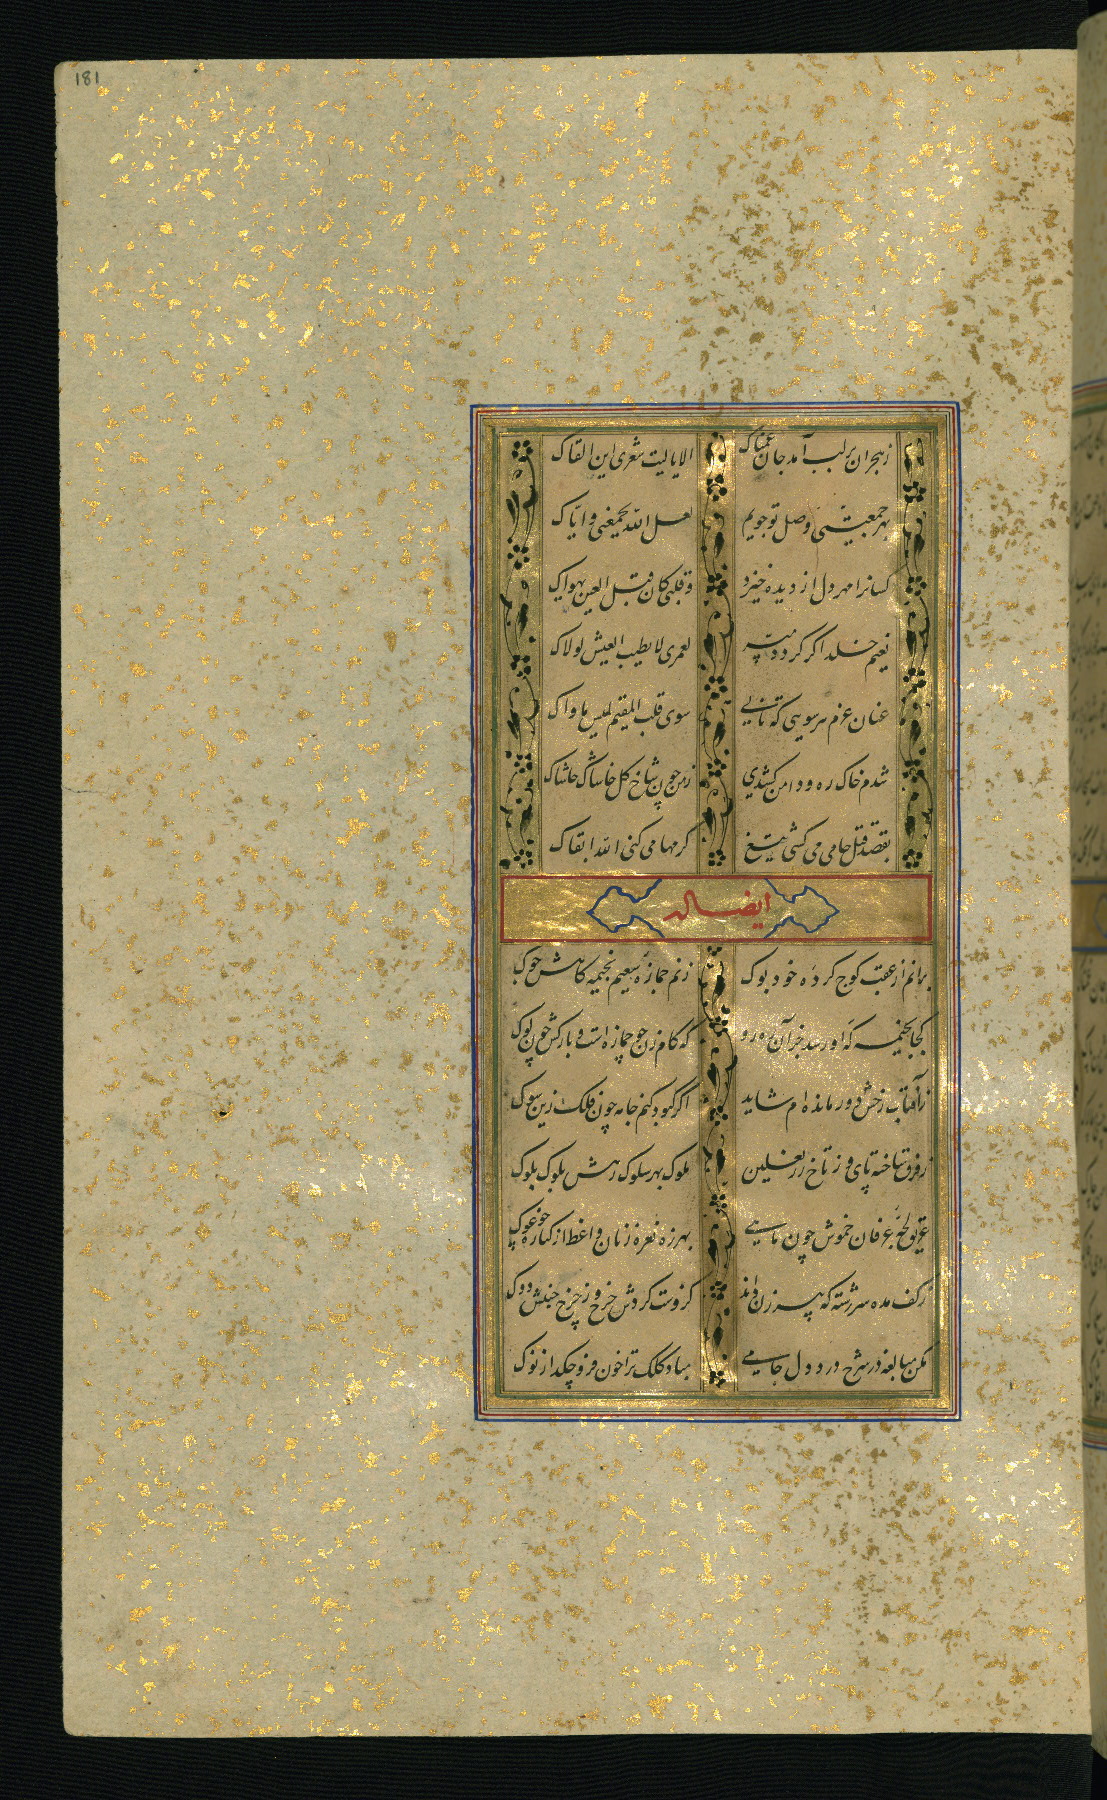 181
ز هجران بر لب آمد جان غمناک
الا یا لیت شعری این القاک
بهر جمعیتی وصل تو جویم
لعل الله یجمعنی و ایاک
کسانرا مهر دل از دیده خیزد
و قلبی کان قبل العین یهواک
نعیم خلد اکر کردد میسر
لعمری لا یطیب العیش لولاک
عنان عزم هر سویی که تابی
سوی قلب المتیم لیس ماواک
شدم خاک ره و دامن کشیدی
ز من چون شاخ کل خاشاک حاشاک
بقصد قتل جامی می کشی تیغ
کرمها می کنی الله ابقاک
ایضا له
برانم از عقب کوچ کرده خود بوک
زنم جمازه سعیم بخیمه کاهش چوک
کجا بخیمه که او رسد خر آن ره رو
که کام زن چو جمازه است و بارکش چون لوک
ز آفتاب رخش دور مانده ام شاید
اکر کبود کنم جامه چون فلک زین سوک
ز فرق ساخته پای و ز تاج زر نعلین
ملوک بهر سلوک رهش بلوک بلوک
غریق لجه عرفان خموش چون ماهی
بهرزه نعره زنان واعظ از کناره چو غوک
ز کف مده سر رشته که پیر زن داند
کزوست کردش چرخ و ز چرخ جنبش دوک
مکن مبالغه در شرح درد دل جامی
مباد کلک ترا خون فرو چکد از نوک